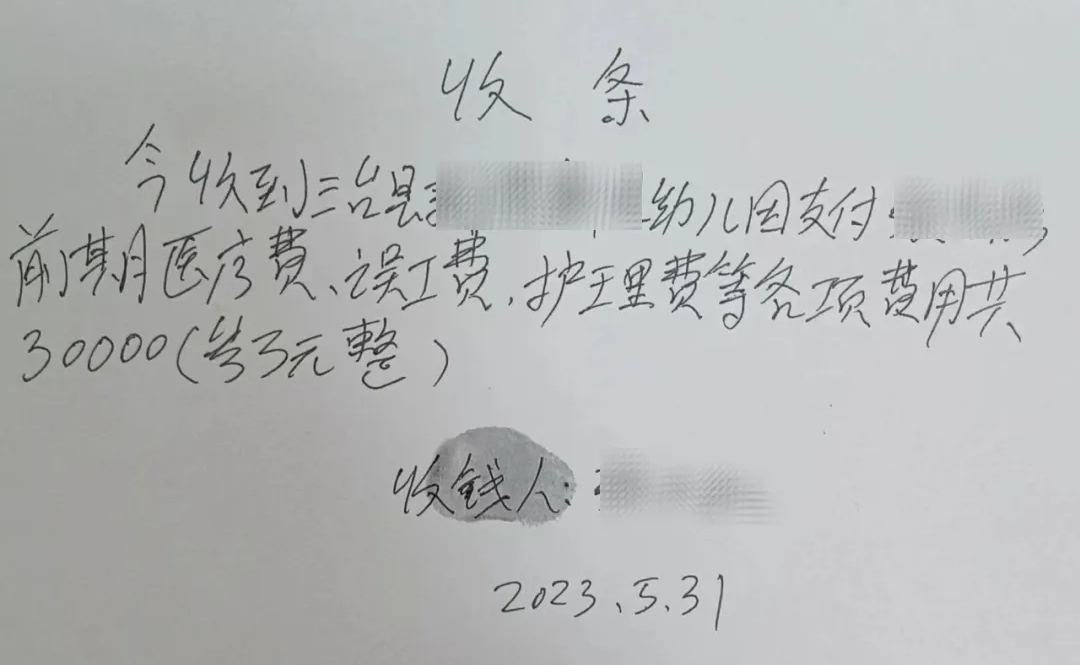 收条
今收到三台县幼儿园支付,
前期医疗费、误工费、护理费等各项费用共
30000(元整)
收钱人:
2023.5.31